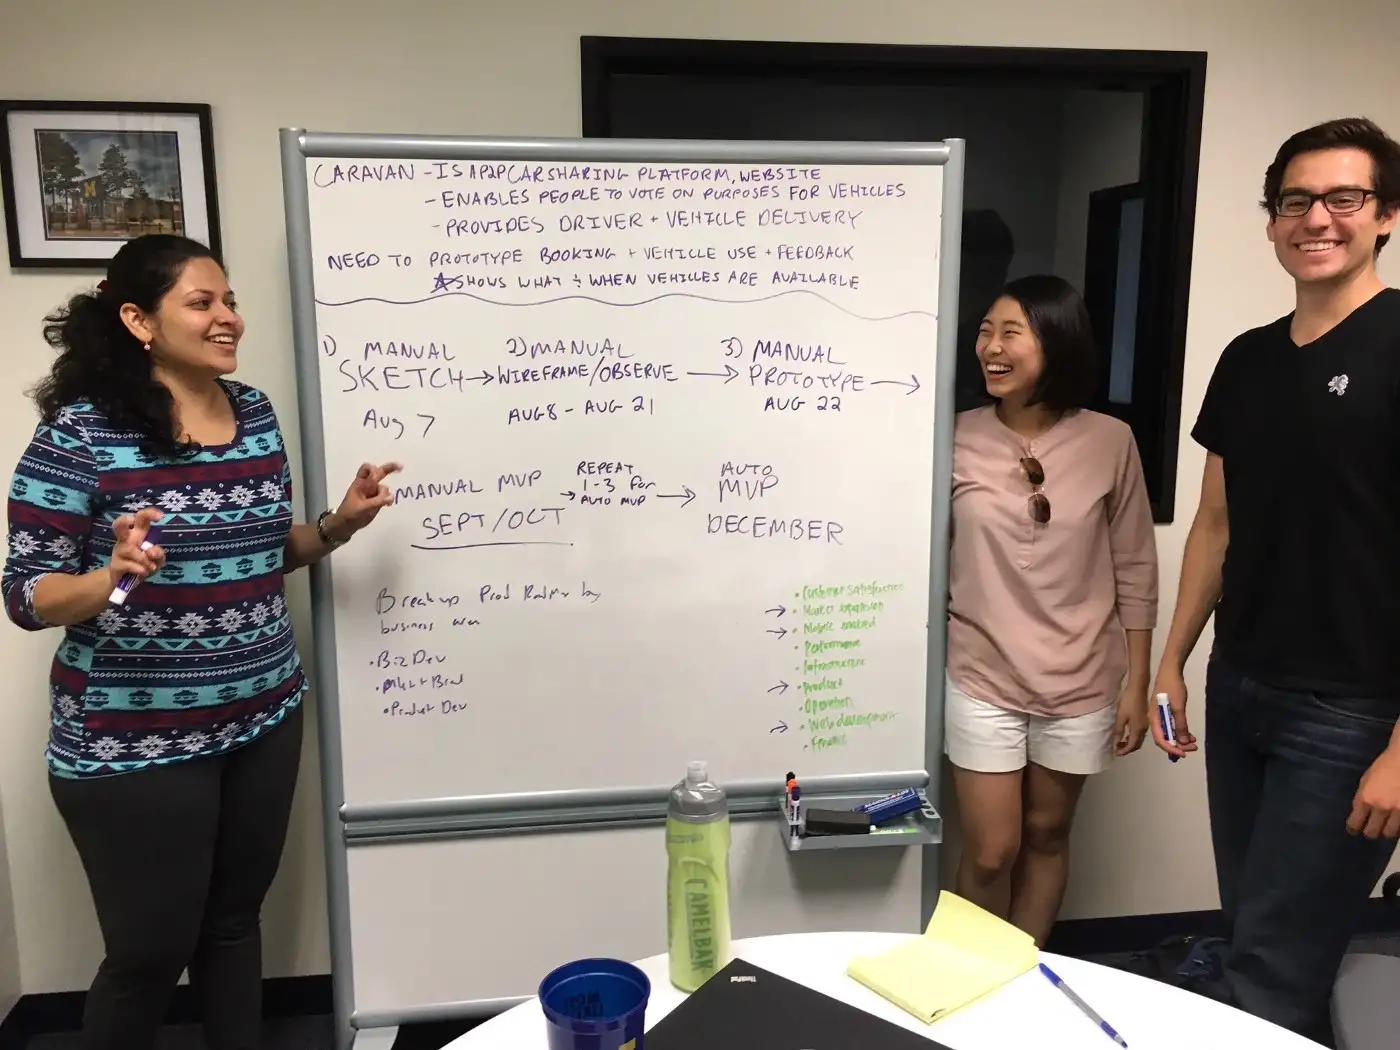 CARAVAN - IS A P2P CAR SHARING PLATFORM, WEBSITE
- ENABLES PEOPLE TO VOTE ON PURPOSES FOR VEHICLES
- PROVIDES DRIVER + VEHICLE DELIVERY
NEED TO PROTOTYPE BOOKING + VEHICLE USE + FEEDBACK
SHOWS WHAT & WHEN VEHICLES ARE AVAILABLE
1) MANUAL
SKETCH →
Aug 7
2) MANUAL
WIREFRAME/OBSERVE →
AUG 8 - AUG 21
3) MANUAL
PROTOTYPE →
AUG 22
MANUAL MVP
SEPT/OCT
REPEAT
1-3 for
→ AUTO MVP →
AUTO
MVP
DECEMBER
Break up Prod by
business area
• Biz Dev
• Product Dev
• Customer Satisfaction
→ • Market expansion
→ • Mobile enabled
• Performance
• Infrastructure
→ • Product
• Operations
→ • Web development
• Finance
M
CAMELBAK
ThinkPad